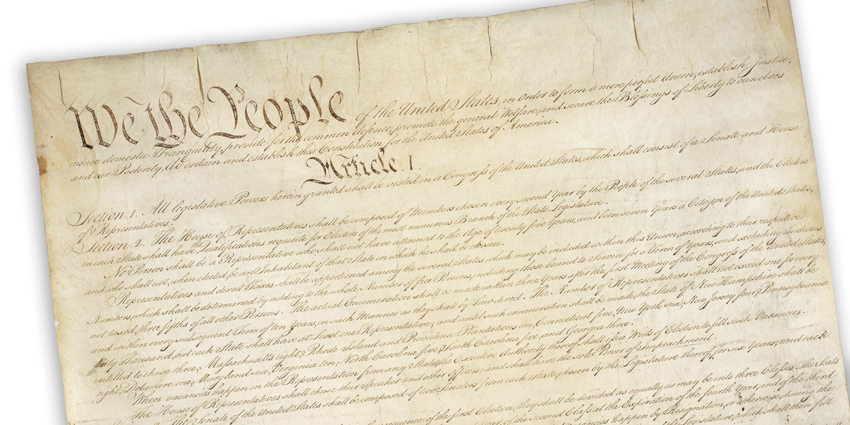 We the People of the United States, in Order to form a more perfect Union, establish Justice,
insure domestic Tranquility, provide for the common defence, promote the general Welfare, and secure the Blessings of Liberty to ourselves
and our Posterity, do ordain and establish this Constitution for the United States of America.
Article. I.
Section. 1. All legislative Powers herein granted shall be vested in a Congress of the United States, which shall consist of a Senate and House
of Representatives.
Section. 2. The House of Representatives shall be composed of Members chosen every second Year by the People of the several States, and the Electors
in each State shall have the Qualifications requisite for Electors of the most numerous Branch of the State Legislature.
No Person shall be a Representative who shall not have attained to the Age of twenty five Years, and been seven Years a Citizen of the United States,
and who shall not, when elected, be an Inhabitant of that State in which he shall be chosen.
Representatives and direct Taxes shall be apportioned among the several States which may be included within this Union, according to their respective
Numbers, which shall be determined by adding to the whole Number of free Persons, including those bound to Service for a Term of Years, and excluding Indians
not taxed, three fifths of all other Persons. The actual Enumeration shall be made within three Years after the first Meeting of the Congress of the United States,
and within every subsequent Term of ten Years, in such Manner as they shall by Law direct. The Number of Representatives shall not exceed one for every
thirty Thousand, but each State shall have at Least one Representative; and until such enumeration shall be made, the State of New Hampshire shall be
entitled to chuse three, Massachusetts eight, Rhode Island and Providence Plantations one, Connecticut five, New York six, New Jersey four, Pennsylvania
eight, Delaware one, Maryland six, Virginia ten, North Carolina five, South Carolina five, and Georgia three.
When vacancies happen in the Representation from any State, the Executive Authority thereof shall issue Writs of Election to fill such Vacancies.
the House of Representatives shall chuse their Speaker and other Officers; and shall have the sole Power of Impeachment.
Senate of the United States shall be composed of two Senators from each State, chosen by the Legislature thereof, for six Years; and each
of the first Election, they shall be divided as equally as may be into three Classes. The Seats
of the second Class at the Expiration of the fourth Year, and of the third
happen by Resignation, or otherwise, during the
Legislature, which shall then fill